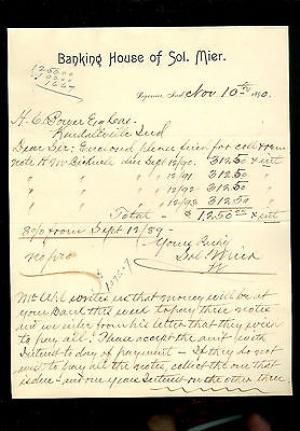 Banking House of Sol. Mier.
12500
10000
Ligonier, Ind., Nov 10th 1890.
H. C.
Kendallville Ind
Dear Sir: Enclosed please find for
note due Sept 12/90. 312.50 & int
" " " 12/91 312.50 "
" " " 12/92 312.50 "
" " " 12/93 312.50 "
Total - $1,250.00 & int
8% from Sept 12/89 -
Yours truly
no pro
Sol. Mier
writes us that money will be at
your Bank this week to pay these notes
and we infer from his letter that they
to pay all. Please accept the amt with
Interest to day of payment - If they do not
want to pay all the notes, collect the one that
is due - and one years Interest on the other three